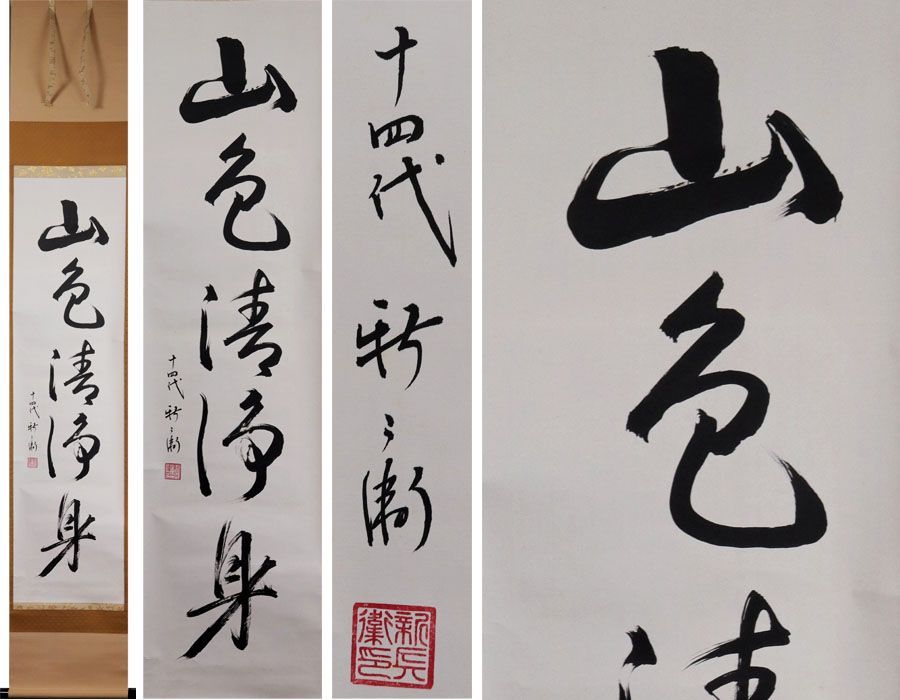 山色清浄身
十四代 新兵衛
山色清浄身
十四代 新兵衛
十四代 新兵衛
新兵衛印
山色清